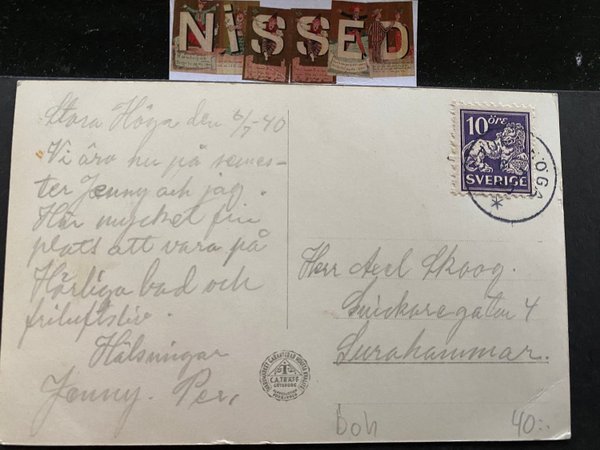 NISSED
Stora Höga den 6/7-40
Vi äro nu på semes-
ter Jenny och jag.
Här mycket fin
plats att vara på
Härliga bad och
friluftsliv.
Hälsningar
Jenny. Per,
10 ÖRE
SVERIGE
ÖGA
Herr Axel Skoog.
Snickaregatan 4
Surahammar.
C.A. TRÄFF
GÖTEBORG
boh
40:-